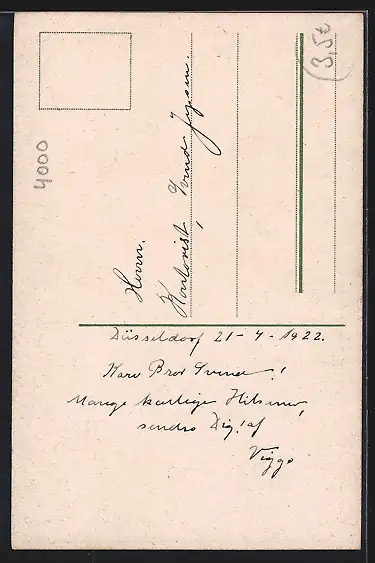 3,50
4000
Herrn.
Kontorist, Svend Jepsen.
Düsseldorf 21-4-1922.
Kære Bror Svend!
Mange kærlige Hilsner,
sendes Dig! af
Viggo